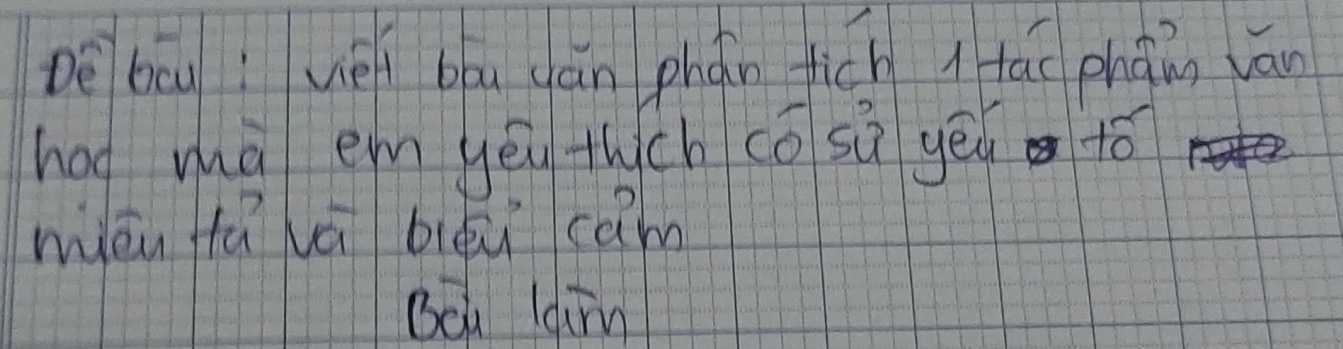 Đề bài : viết bài văn phân tích 1 tác phẩm văn
học mà em yêu thích có sử yếu tố
miêu tả và biểu cảm
Bài làm